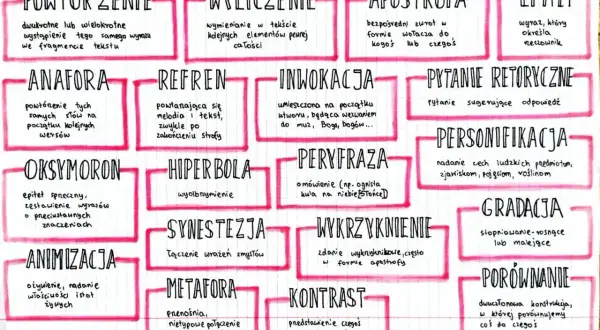 POWTÓRZENIE
dwukrotne lub wielokrotne
wystąpienie tego samego wyrazu
we fragmencie tekstu
WYLICZENIE
wymienianie w tekście
kolejnych elementów pewnej
całości
APOSTROFA
bezpośredni zwrot w
formie wołacza do
kogoś lub czegoś
EPITET
wyraz, który
określa
rzeczownik
ANAFORA
powtórzenie tych
samych słów na
początku kolejnych
wersów
REFREN
powtarzająca się
melodia i tekst,
zwykle po
zakończeniu strofy
INWOKACJA
umieszczona na początku
utworu, będąca wezwaniem
do muz, Boga, bogów...
PYTANIE RETORYCZNE
pytanie sugerujące odpowiedź
PERSONIFIKACJA
nadanie cech ludzkich przedmiotom,
zjawiskom, pojęciom, roślinom
OKSYMORON
epitet sprzeczny,
zestawienie wyrazów
o przeciwstawnych
znaczeniach
HIPERBOLA
wyolbrzymienie
PERYFRAZA
omówienie (np. ognista
kula na niebie [słońce])
SYNESTEZJA
łączenie wrażeń zmysłów
WYKRZYKNIENIE
zdanie wykrzyknikowe, często
w formie apostrofy
GRADACJA
stopniowanie-rosnące
lub malejące
ANIMIZACJA
ożywienie, nadanie
właściwości istot
żywych
METAFORA
przenośnia,
nietypowe połączenie
KONTRAST
przedstawienie czegoś
PORÓWNANIE
dwuczłonowa konstrukcja,
w której porównujemy
coś do czegoś